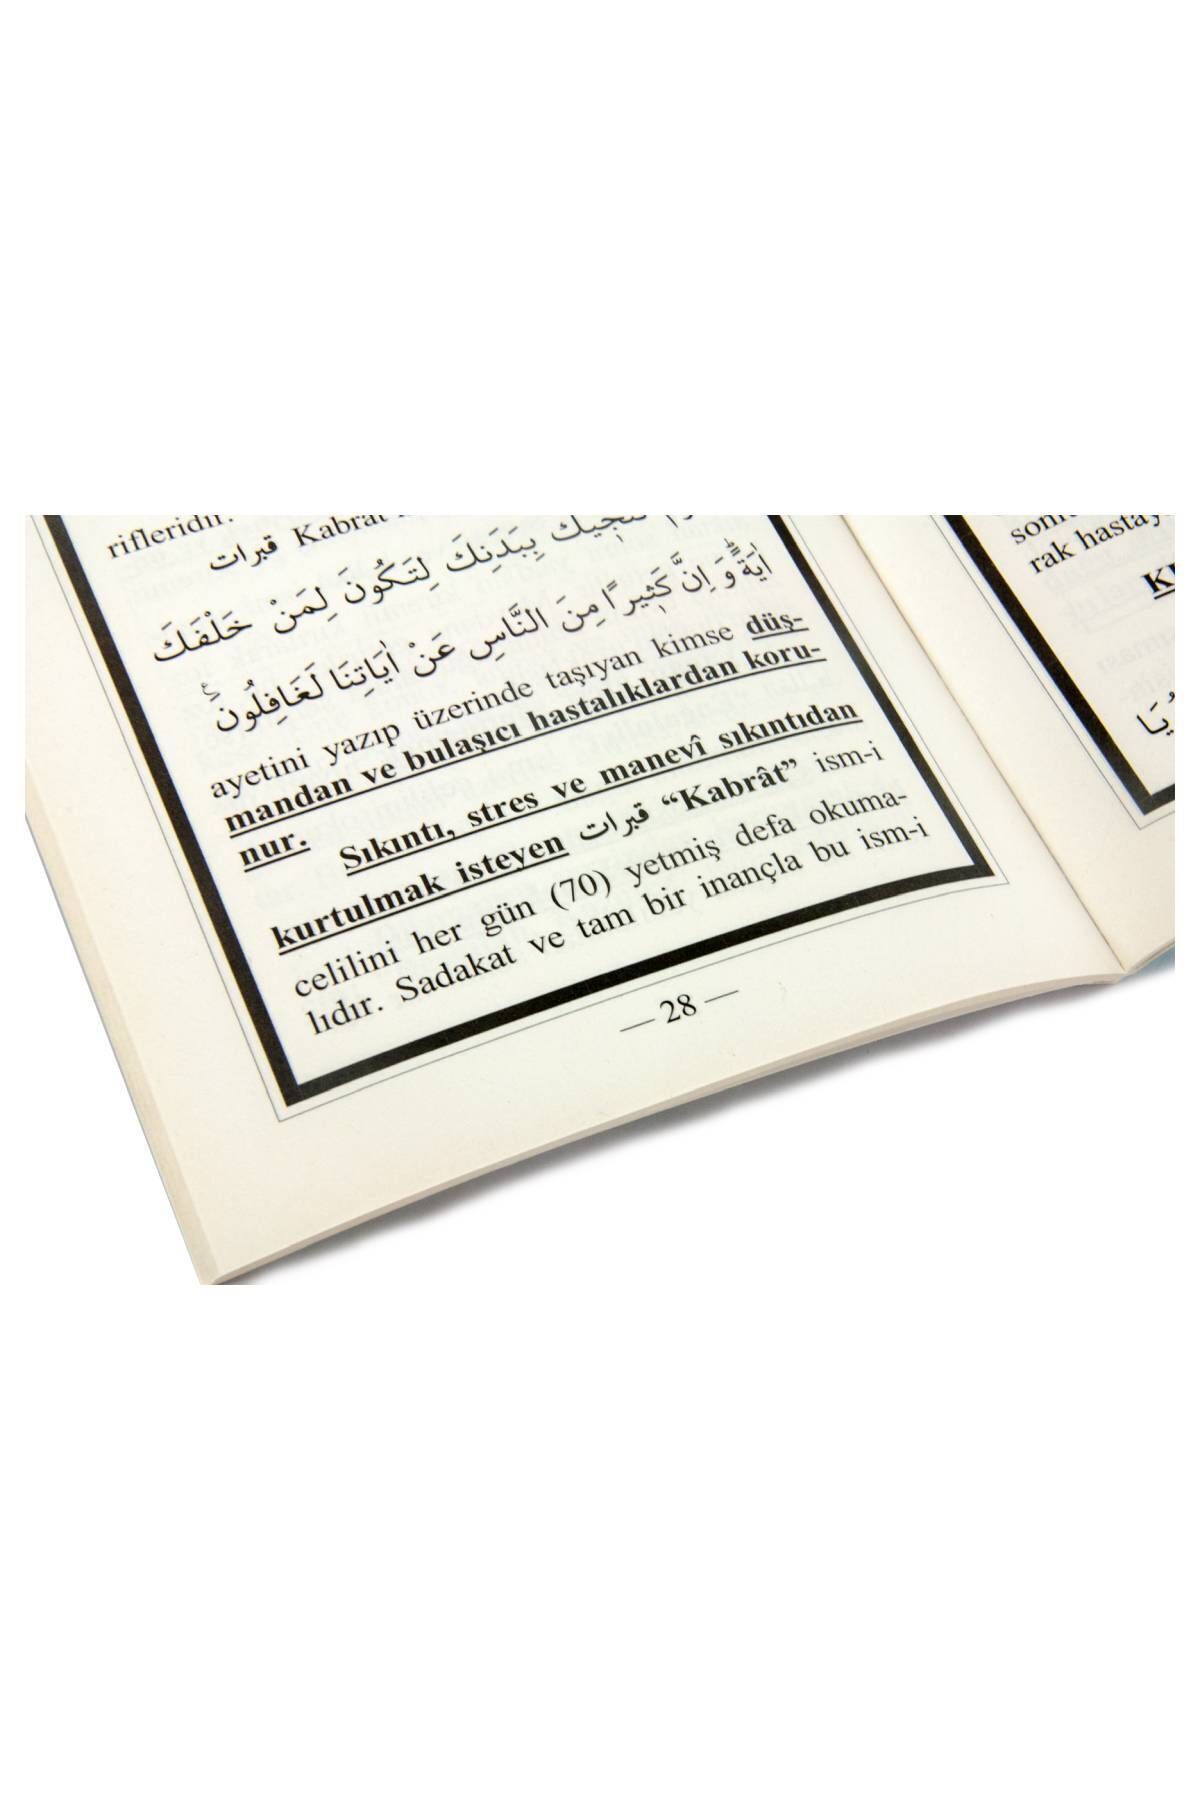 rifleridir.
قبرات Kabrat
نُنَجّ۪يكَ بِبَدَنِكَ لِتَكُونَ لِمَنْ خَلْفَكَ
اٰيَةًۜ وَاِنَّ كَث۪يرًا مِنَ النَّاسِ عَنْ اٰيَاتِنَا لَغَافِلُونَ۟
ayetini yazıp üzerinde taşıyan kimse düş-
mandan ve bulaşıcı hastalıklardan koru-
nur.
Sıkıntı, stres ve manevî sıkıntıdan
kurtulmak isteyen قبرات “Kabrât” ism-i
celilini her gün (70) yetmiş defa okuma-
lıdır. Sadakat ve tam bir inançla bu ism-i
— 28 —
rak hastay